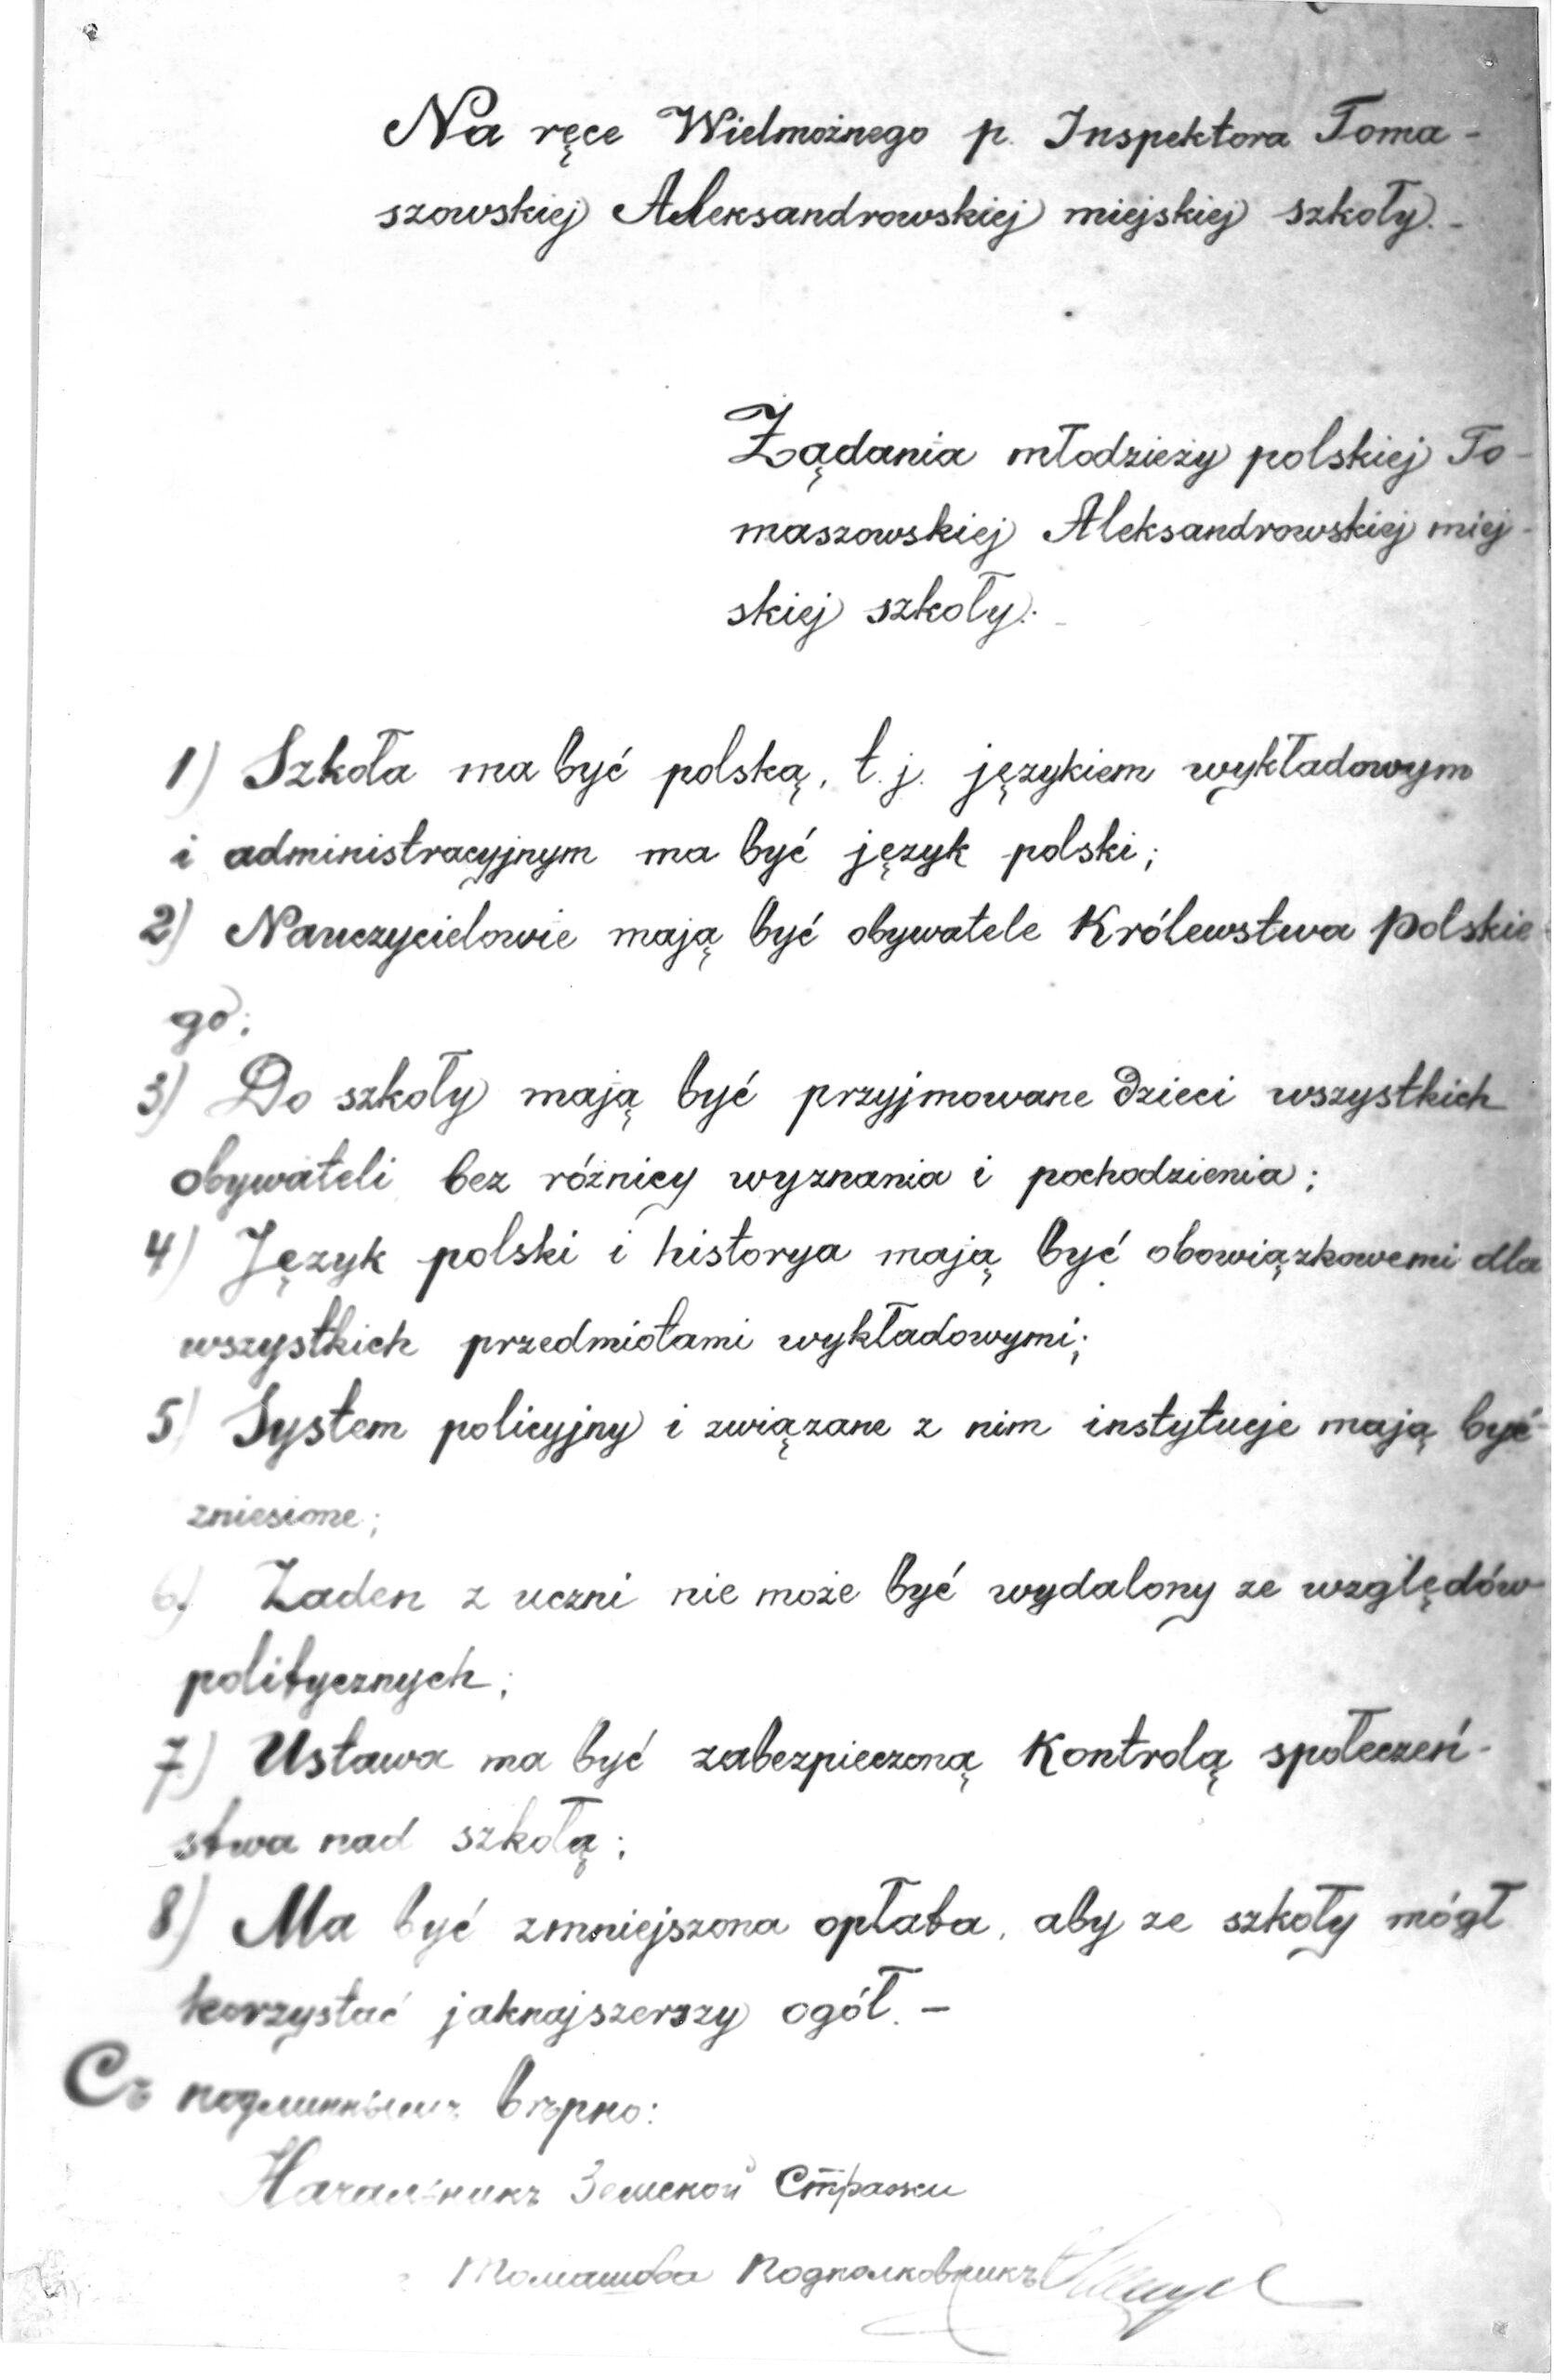 Na ręce Wielmożnego p. Inspektora Toma-
szowskiej Aleksandrowskiej miejskiej szkoły.-
Żądania młodzieży polskiej To-
maszowskiej Aleksandrowskiej miej-
skiej szkoły.-
1) Szkoła ma być polską, t. j. językiem wykładowym
i administracyjnym ma być język polski;
2) Nauczycielowie mają być obywatele Królewstwa Polskie-
go;
3) Do szkoły mają być przyjmowane dzieci wszystkich
obywateli bez różnicy wyznania i pochodzienia;
4) Język polski i historya mają być obowiązkowemi dla
wszystkich przedmiotami wykładowymi;
5) System policyjny i związane z nim instytucje mają być
zniesione;
6) Żaden z uczni nie może być wydalony ze względów
politycznych;
7) Ustawa ma być zabezpieczoną kontrolą społeczeń-
stwa nad szkołą;
8) Ma być zmniejszona opłata, aby ze szkoły mógł
korzystać jaknajszerszy ogół. –
Съ подлиннымъ вѣрно:
Начальникъ Земской Стражи
Томашова Подполковникъ